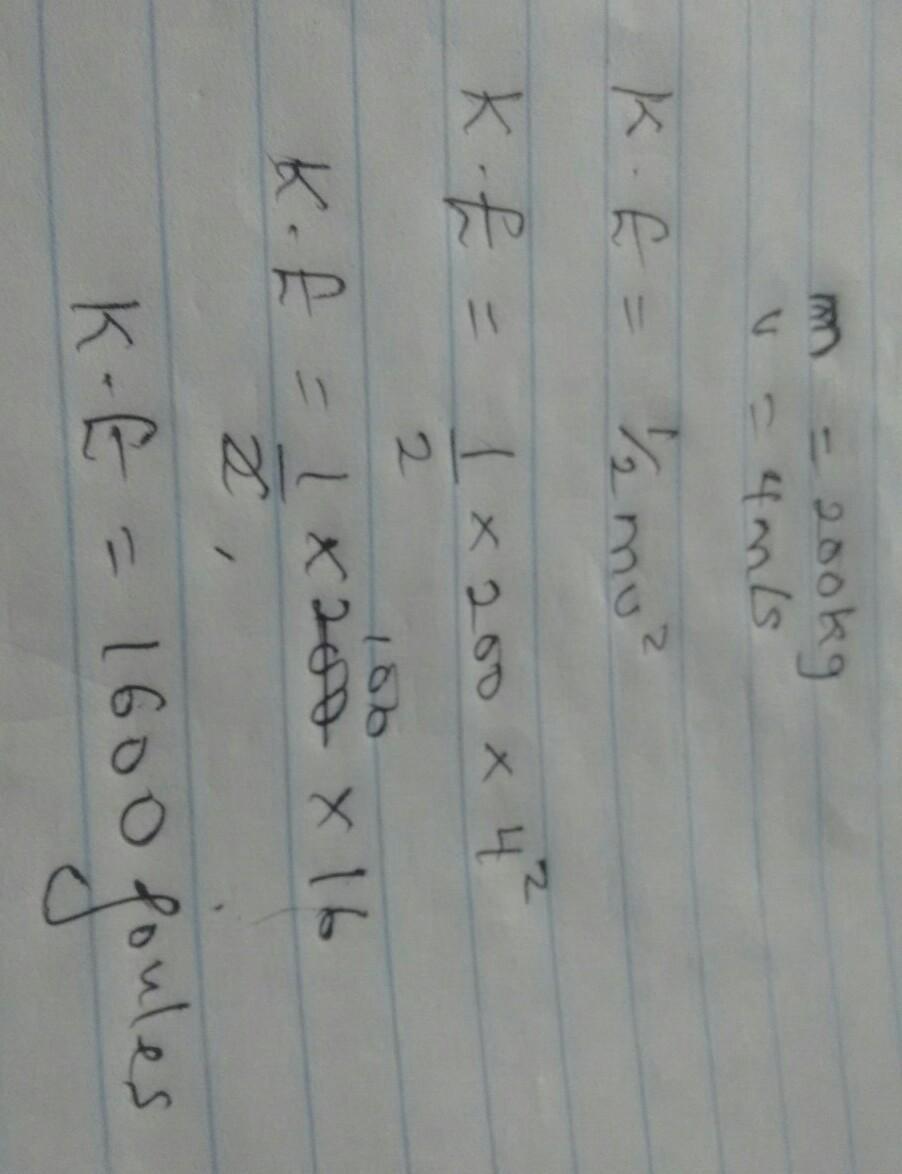 m = 200kg
v = 4m/s
K.E = ½mv²
K.E = 1/2 × 200 × 4²
K.E = 1/2 × 200 100 × 16
K.E = 1600 joules